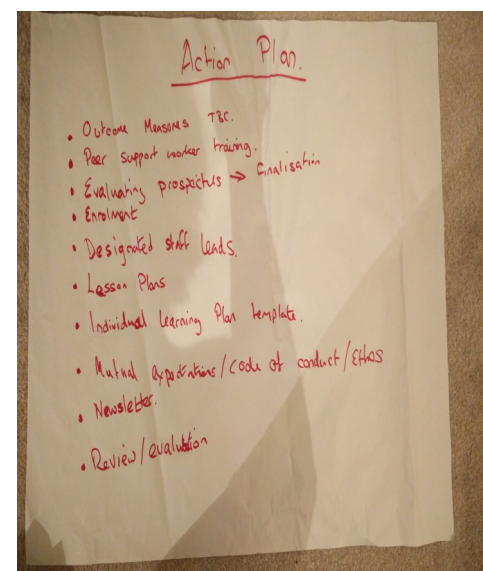 Action Plan.
• Outcome Measures TBC.
• Peer support worker training.
• Evaluating prospectus → finalisation
• Enrolment
• Designated staff leads.
• Lesson Plans
• Individual Learning Plan template.
• Mutual expectations/code of conduct/Ethos
• Newsletter.
• Review/evaluation